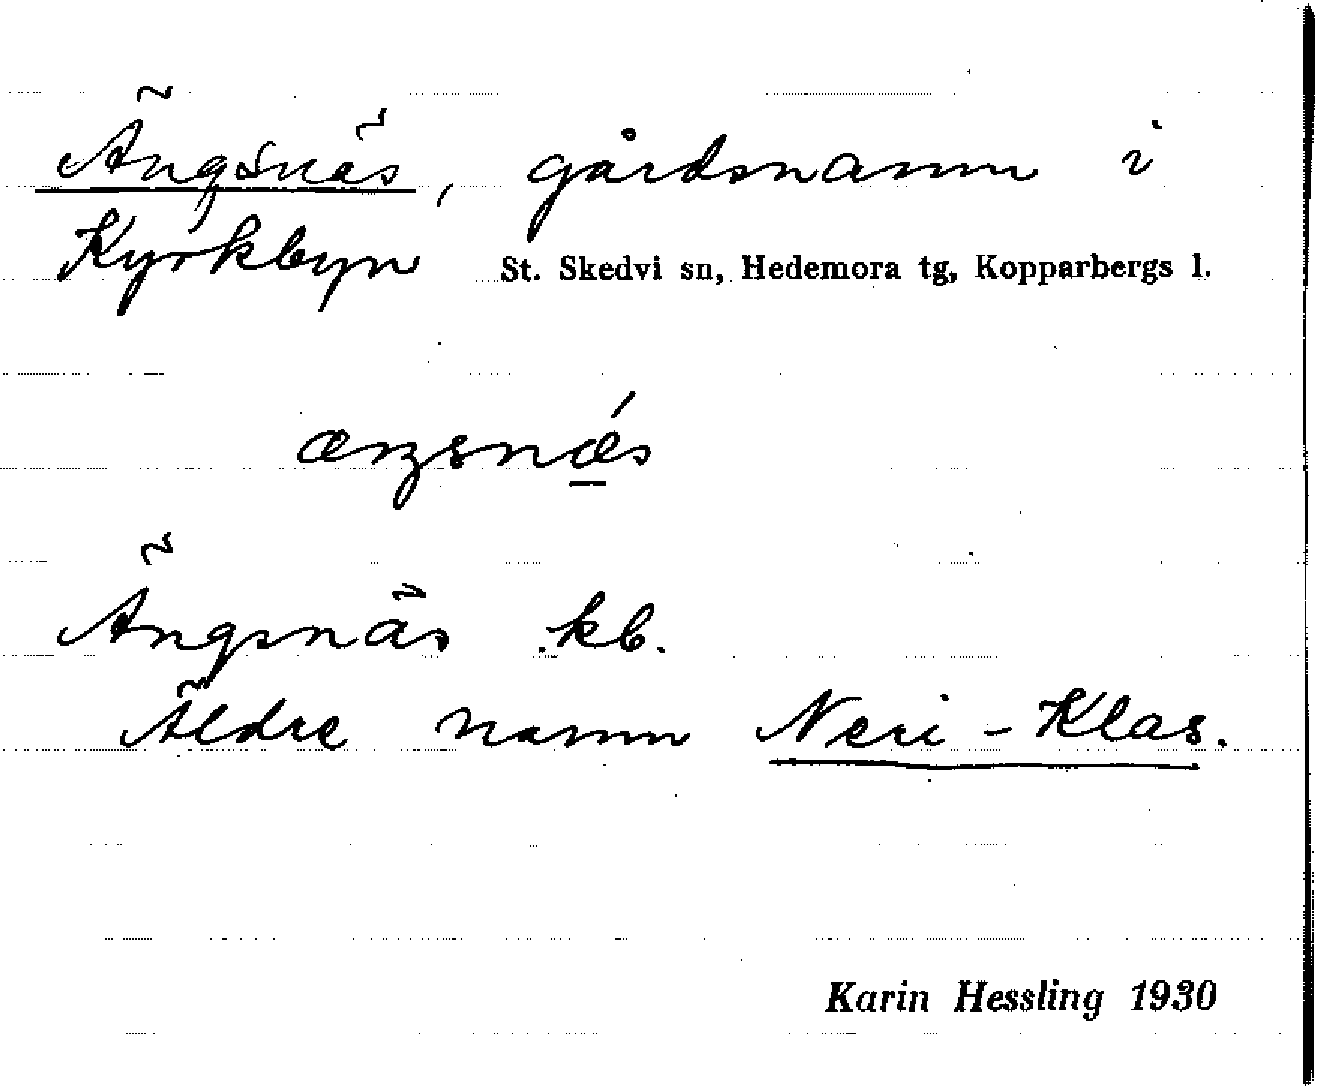 Ängsnäs, gårdsnamn i
Kyrkbyn St. Skedvi sn, Hedemora tg, Kopparbergs l.
æŋsnǽs
Ängsnäs kb.
Äldre namn Neri-Klas.
Karin Hessling 1930